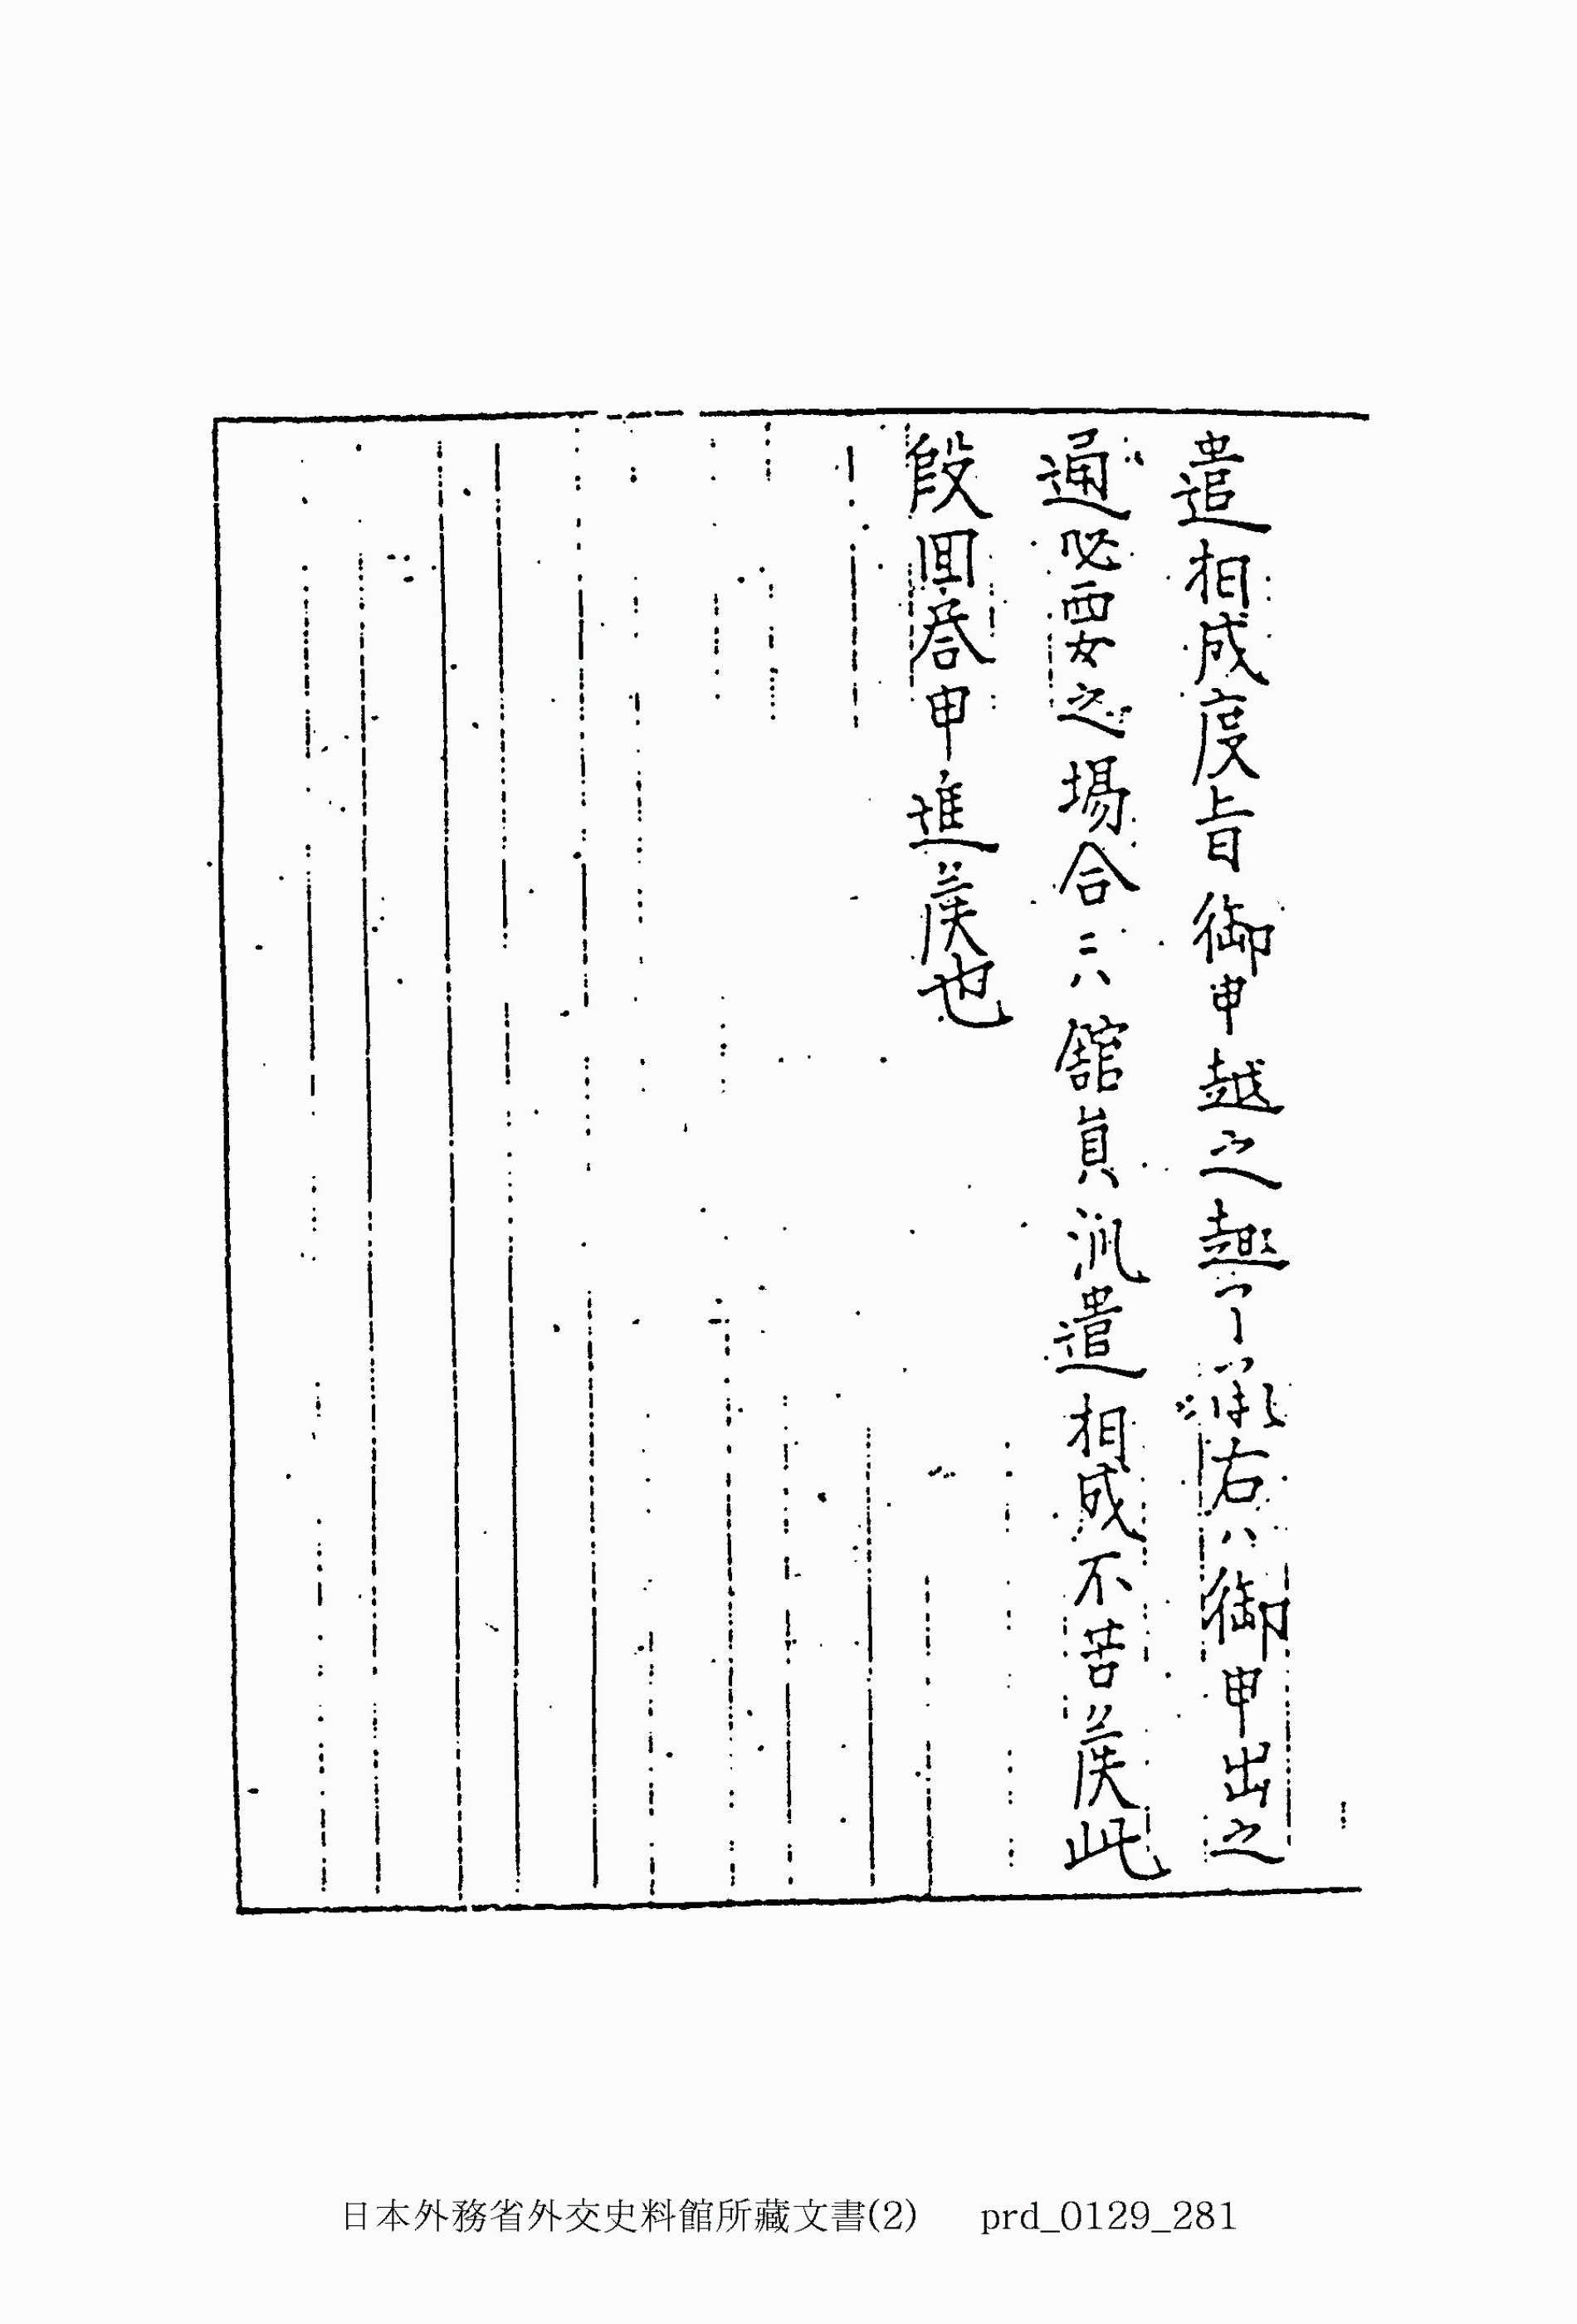 遣相成度旨御申越之趣了承右ハ御申出之
通必要之場合ニハ館員派遣相成不苦候此
段回答申進候也
日本外務省外交史料館所藏文書(2) prd_0129_281